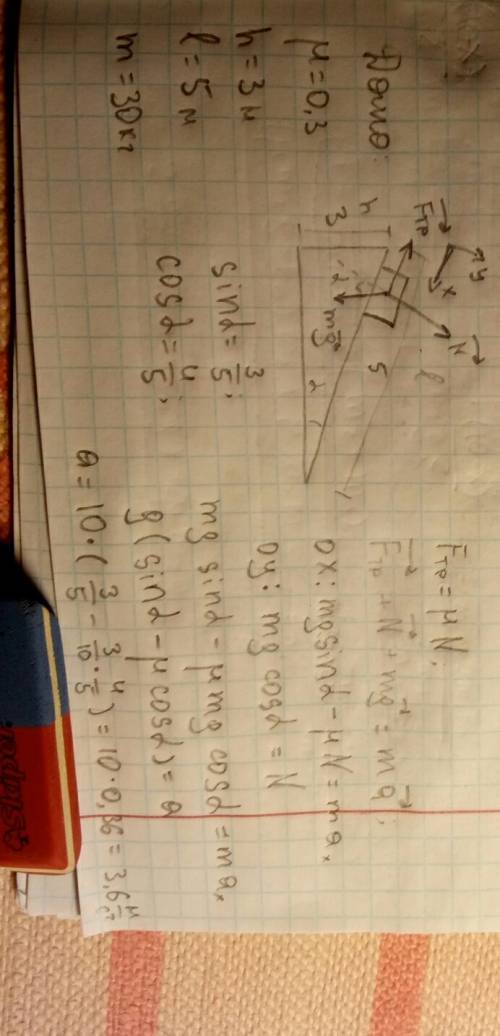 Дано:
μ = 0,3
h = 3 м
l = 5 м
m = 30 кг
y
x
Fтр
N
mg
h
3
l
5
α
α
sinα = 3/5;
cosα = 4/5;
Fтр = μN;
Fтр + N + mg = ma;
ox: mg sinα - μN = maₓ
oy: mg cosα = N
mg sinα - μmg cosα = maₓ
g(sinα - μ cosα) = a
a = 10·(3/5 - 3/10·4/5) = 10·0,36 = 3,6 м/с²